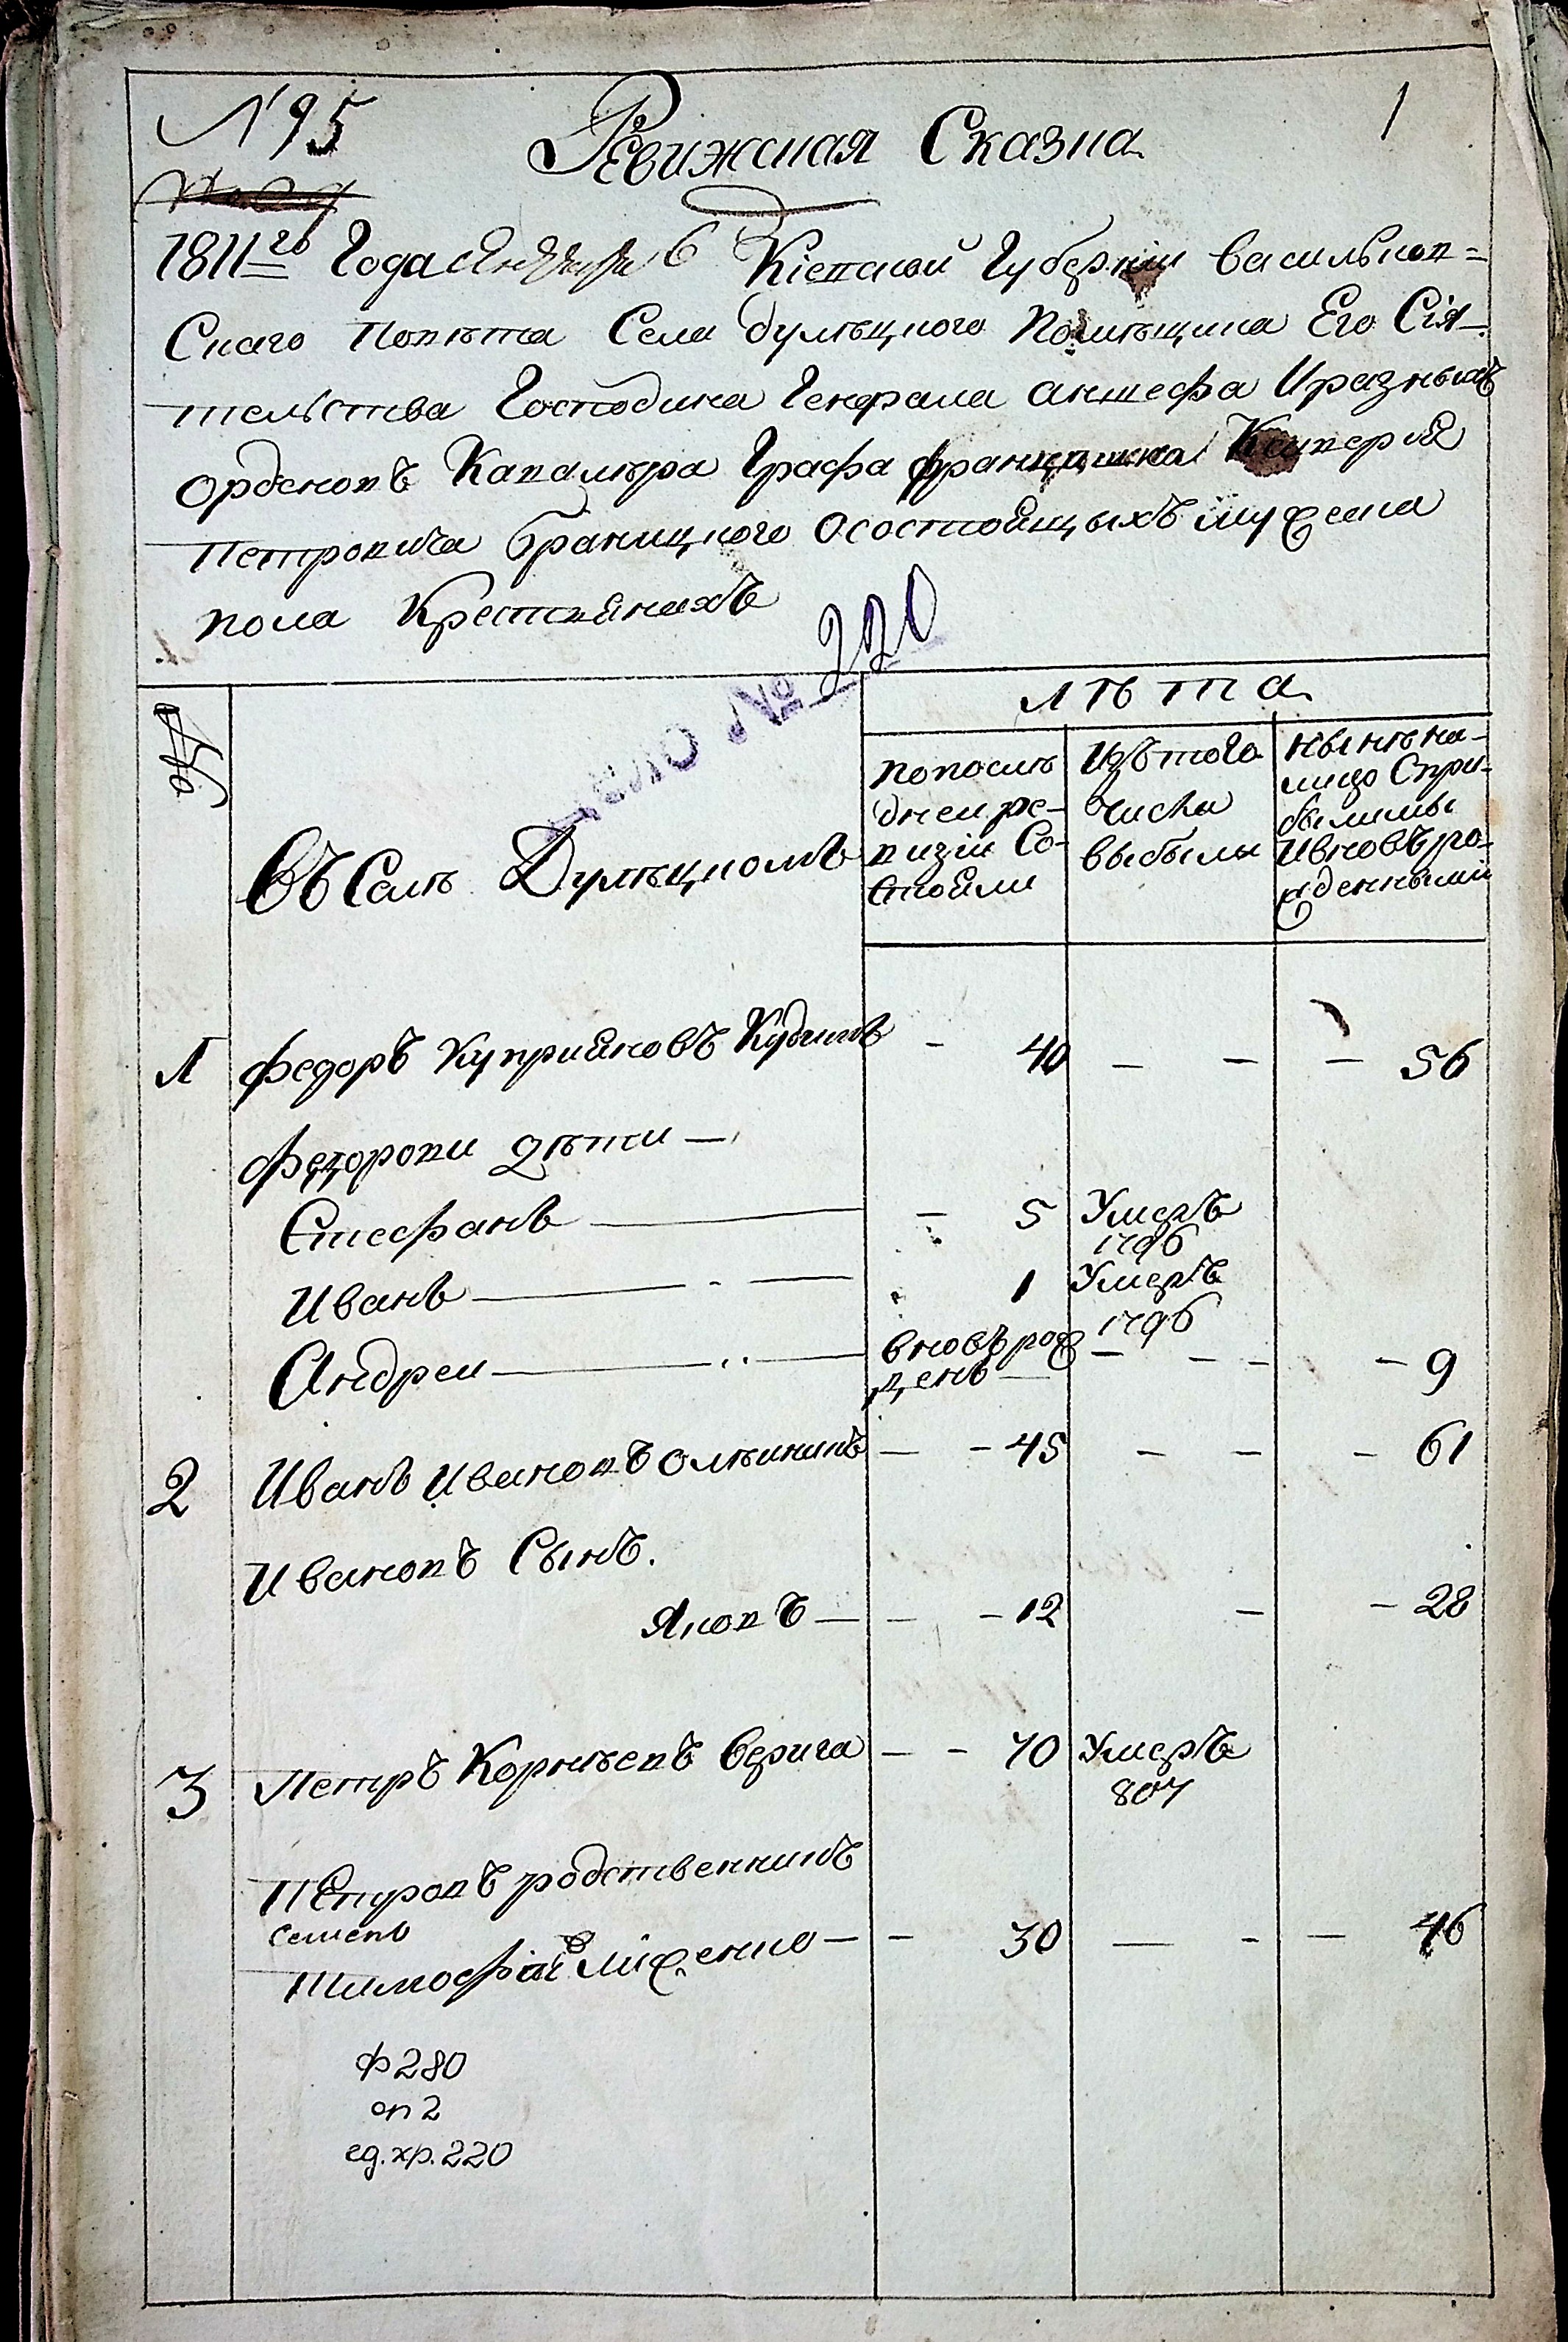 № 95
1
Ревижская Сказка
1811го Года Января 6 Кіевской Губерніи Васильков=
скаго Повѣта Села Дулѣцкого Помѣщика Его Сія-
тельства Господина Генерала аншефа Иразныхъ
орденовъ Кавалѣра Графа францишка Ксаверія
Петровича браницкого осостоящыхъ мужеска
пола Крестянахъ
Дело № 220
Лѣта
№
Въ Селѣ Дулѣцкомъ
попослѣ
дней ре-
визіи Со-
стояли
Изъ того
числа
выбыли
нынѣ на-
лицо Спри-
былыми
Ивновъ ро-
жденными
1 Федоръ Куприяновъ - 40 — — — 56
Федоровы дѣти —
Стефанъ — — 5 Умеръ
1796
Иванъ — - — 1 Умеръ
1796
Андрей — вновъ рож
денъ — — - - — 9
2 Иванъ Ивановъ — - 45 - - - 61
Ивановъ Сынъ.
Яковъ — - - 12 - - 28
3 Петръ Корнѣевъ Верига — - 70 Умеръ
807
Петровъ родственникъ
семенъ
Тимофій — - 30 — - — 46
ф 280
оп 2
ед. хр. 220